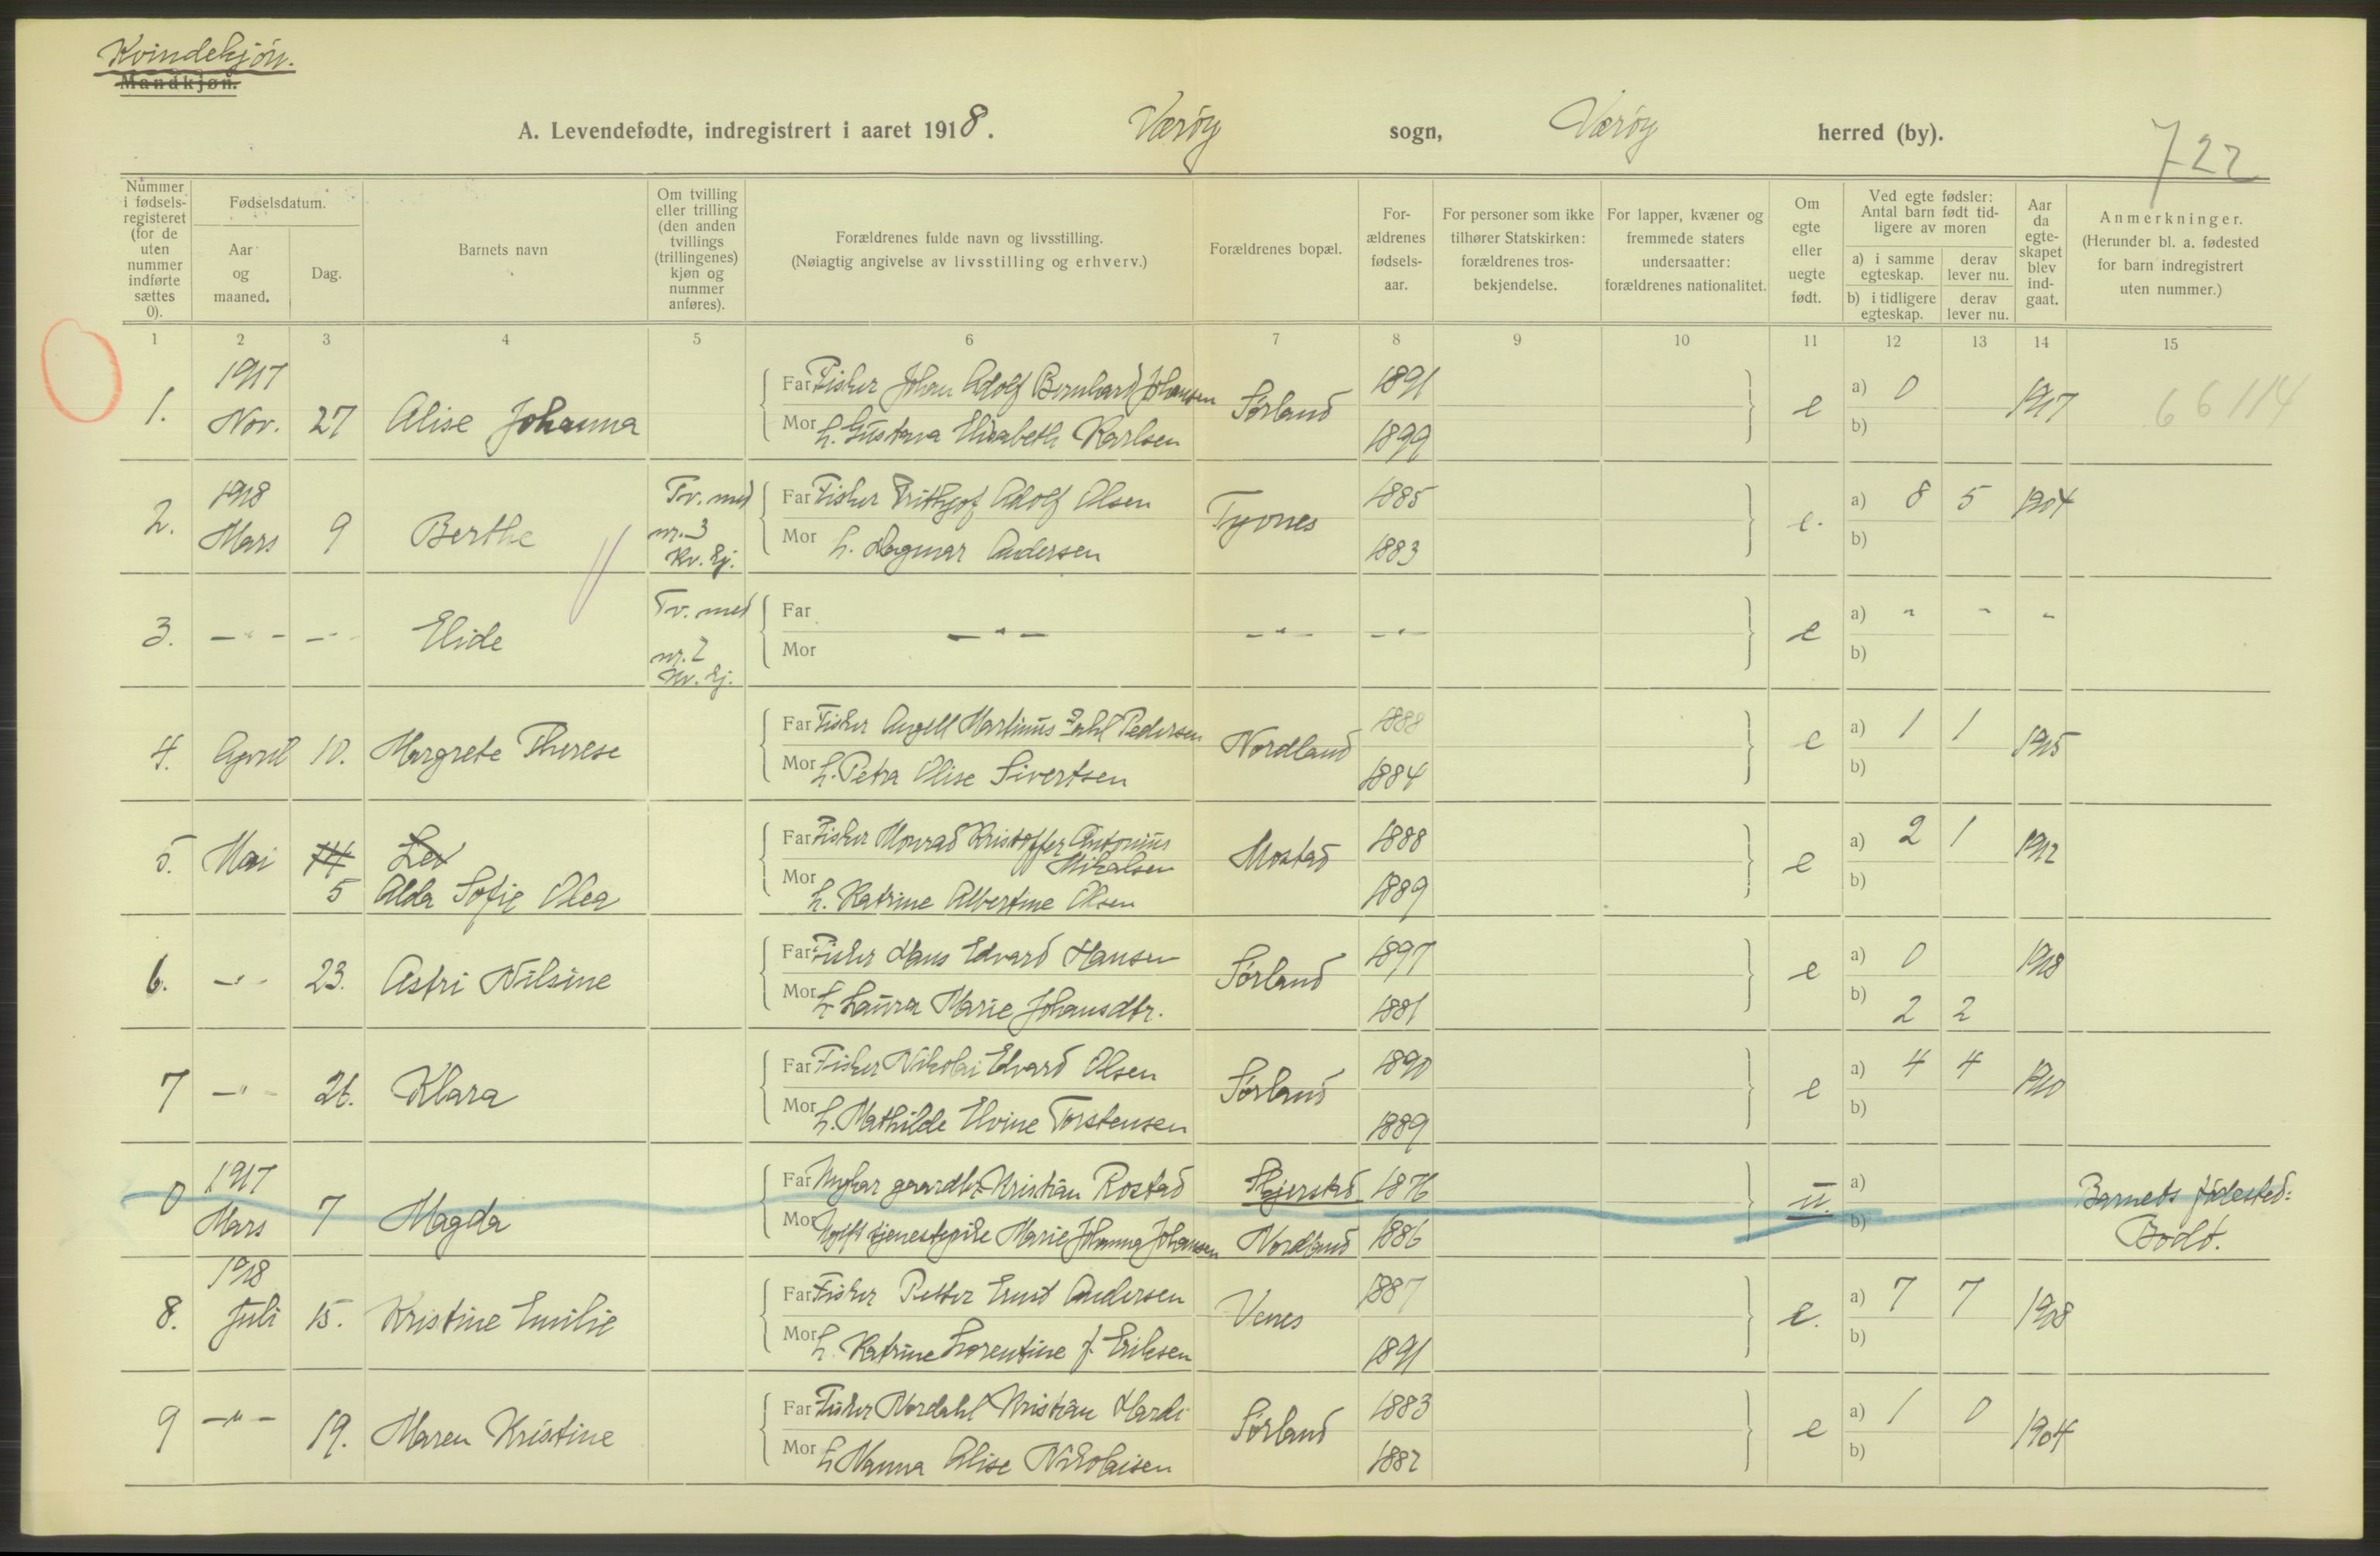 Kvindekjøn.
Mandkjøn.
A. Levendefødte, indregistrert i aaret 1918. Værøy sogn, Værøy herred (by).
722
Nummer i fødsels-registeret (for de uten nummer indførte sættes 0).
Fødselsdatum.
Aar og maaned.
Dag.
Barnets navn
Om tvilling eller trilling (den anden tvillings (trillingenes) kjøn og nummer anføres).
Forældrenes fulde navn og livsstilling.
(Nøiagtig angivelse av livsstilling og erhverv.)
Forældrenes bopæl.
For-ældrenes fødsels-aar.
For personer som ikke tilhører Statskirken: forældrenes tros-bekjendelse.
For lapper, kvæner og fremmede staters undersaatter: forældrenes nationalitet.
Om egte eller uegte født.
Ved egte fødsler: Antal barn født tid-ligere av moren
a) i samme egteskap.
derav lever nu.
b) i tidligere egteskap.
derav lever nu.
Aar da egte-skapet blev ind-gaat.
Anmerkninger.
(Herunder bl. a. fødested for barn indregistrert uten nummer.)
1 2 3 4 5 6 7 8 9 10 11 12 13 14 15
1. 1917 Nov. 27 Alise Johanna
Far Fisker Johan Adolf Bernhard Johansen Sørland 1891 e a) 0 1917 66114
Mor h. Gustava Elisabeth Karlsen 1899 b)
2. 1918 Mars 9 Berthe Tv. med nr. 3 Kv. kj.
Far Fisker Frithjof Adolf Olsen Tyvnes 1885 e. a) 8 5 1904
Mor h. Dagmar Andersen 1883 b)
3. — " — — " — Elide Tv. med nr. 2 Kv. kj.
Far — " — — " — — " — e a) " " "
Mor b)
4. April 10. Margrete Therese
Far Fisker Angell Martinus Dahl Pedersen Nordland 1888 e a) 1 1 1915
Mor h. Petra Olise Sivertsen 1884 b)
5. Mai 14 Lev
5 Alda Sofie Olea
Far Fisker Monrad Kristoffer Antonius Mikalsen Mostad 1888 e a) 2 1 1912
Mor h. Katrine Albertine Olsen 1889 b)
6. — " — 23. Astri Nilsine
Far Fisker Hans Edvard Hansen Sørland 1897 e a) 0 1918
Mor h. Laura Marie Johansdtr. 1881 b) 2 2
7 — " — 26. Klara
Far Fisker Nikolai Edvard Olsen Sørland 1890 e a) 4 4 1910
Mor h. Mathilde Elvine Torstensen 1889 b)
0 1917 Mars 7 Magda
Far Kristian Rostad Skjerstad 1876 u. a) Barnets fødested:
Mor Ugift tjenestepike Marie Johanna Johansen Nordland 1886 b) Bodø.
8. 1918 Juli 15. Kristine Emilie
Far Fisker Petter Ernst Andersen Venes 1887 e. a) 7 7 1908
Mor h. Katrine Lorentine f. Eriksen 1891 b)
9 — " — 19. Maren Kristine
Far Fisker Nordahl Kristian Hardi Sørland 1883 e a) 1 0 1904
Mor h. Nanna Elise Nikolaisen 1882 b)